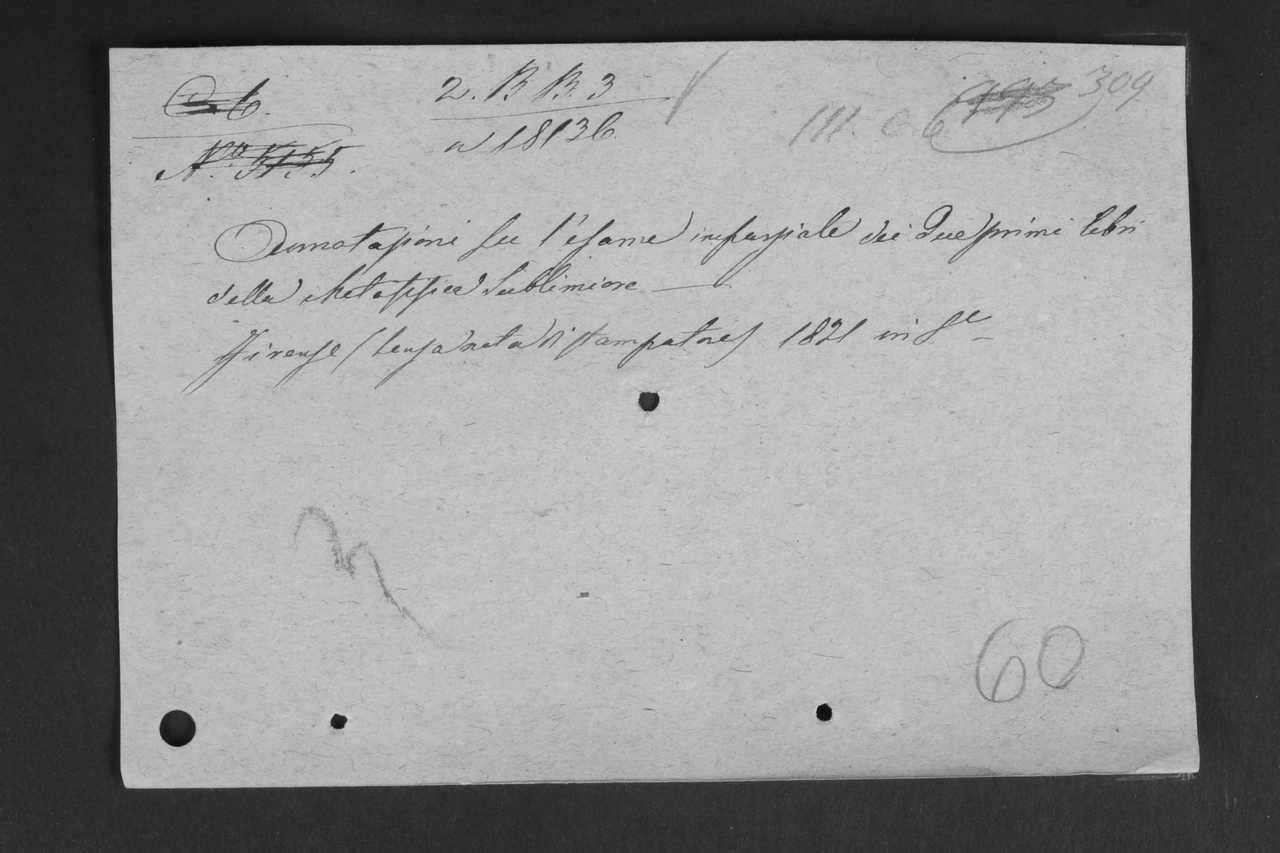 6. 2. B B. 3 309
No 5155. a 18136 III. C 6
Annotazioni su l'esame imparziale dei due primi libri
della Metafisica Sublimiore —
Firenze (senza nota di stampatore) 1821 in 8e
60